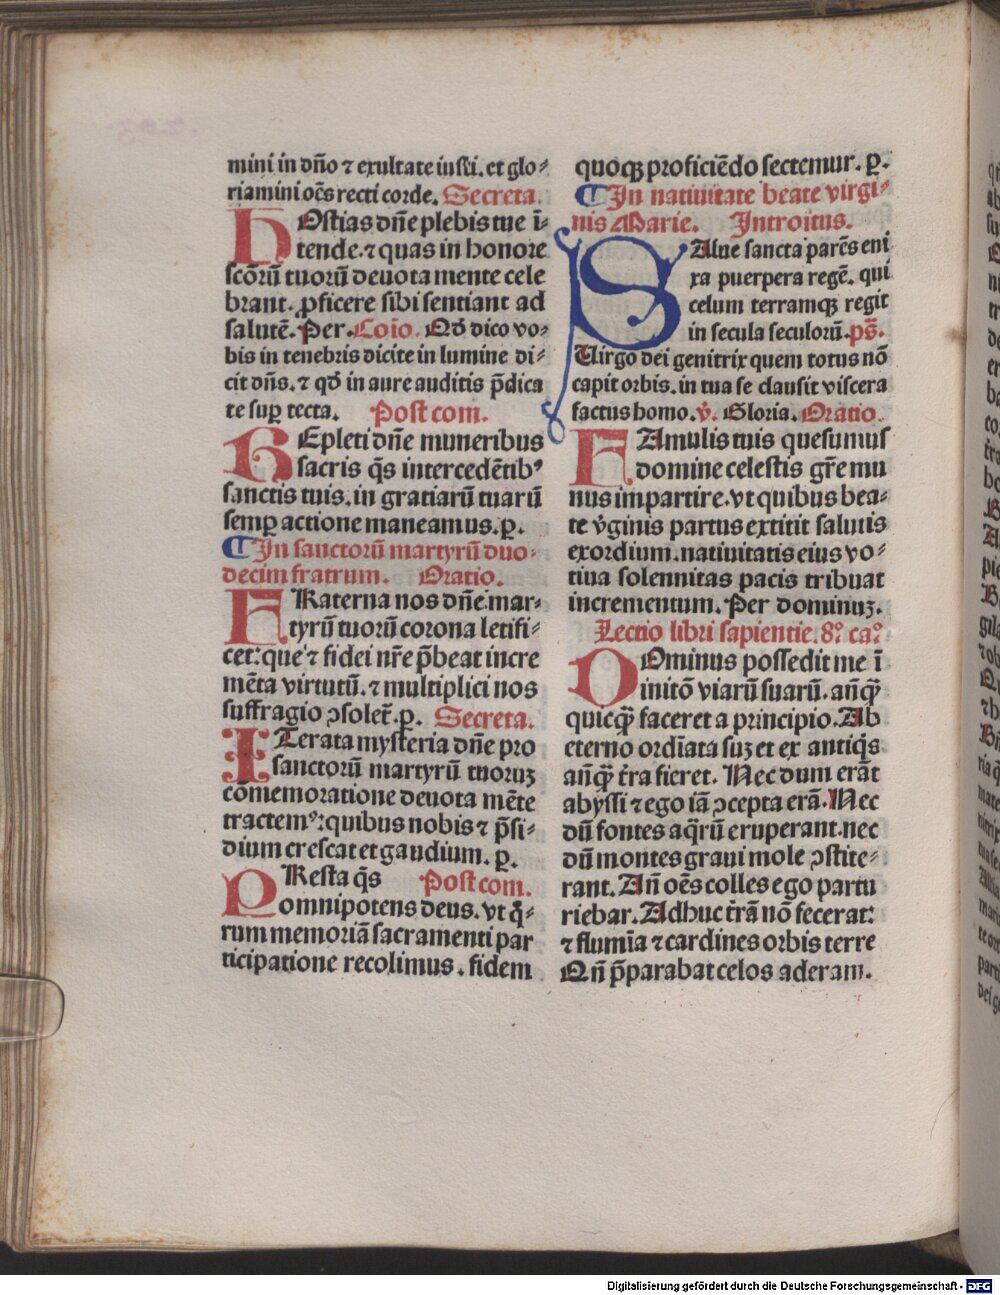 mini in dño ⁊ exultate iusti. et glo⸗
riamini oẽs recti corde. Secreta.
HOstias dñe plebis tue ĩ⸗
tende. ⁊ quas in honore
scõrũ tuorũ deuota mente cele
brant. ꝓficere sibi sentiant ad
salutẽ. Per. Cõio. Qđ dico vo⸗
bis in tenebris dicite in lumine di⸗
cit dñs. ⁊ qđ in aure auditis p̃dica
te suꝑ tecta. Post com.
REpleti dñe muneribus
sacris q̃s intercedẽtibꝰ
sanctis tuis. in gratiarũ tuarũ
semꝑ actione maneamus. ꝑ.
¶ In sanctorũ martyrũ duo⸗
decim fratrum. Oratio.
FRaterna nos dñe mar⸗
tyrũ tuorũ corona letifi⸗
cet: que ⁊ fidei nr̃e p̃beat incre
mẽta virtutũ. ⁊ multiplici nos
suffragio ↄsolet̃. ꝑ. Secreta.
ITerata mysteria dñe pro
sanctorũ martyrũ tuoruꝫ
cõmemoratione deuota mẽte
tractemꝰ: quibus nobis ⁊ p̃si⸗
dium crescat et gaudium. ꝑ.
PResta q̃s Post com.
omnipotens deus. vt q̃⸗
rum memoriã sacramenti par
ticipatione recolimus. fidem
quoqꝫ proficiẽdo sectemur. ꝑ.
¶ In natiuitate beate virgi⸗
nis Marie. Introitus.
SAlue sancta parẽs eni
xa puerpera regẽ. qui
celum terramqꝫ regit
in secula seculorũ. pš.
Virgo dei genitrix quem totus nõ
capit orbis. in tua se clausit viscera
factus homo. v̾. Gloria. Oratio.
FAmulis tuis quesumus
domine celestis gr̃e mu
nus impartire. vt quibus bea⸗
te v̾ginis partus extitit salutis
exordium. natiuitatis eius vo⸗
tiua solennitas pacis tribuat
incrementum. Per dominuꝫ.
Lectio libri sapientie. 8º caº
DOminus possedit me ĩ
initõ viarũ suarũ. añq̃
quicq̃ faceret a principio. Ab
eterno ordĩata suꝫ et ex antiq̃s
añq̃ t̃ra fieret. Nec dum erãt
abyssi ⁊ ego iã ↄcepta erã. Nec
dũ fontes aq̃rũ eruperant. nec
dũ montes graui mole ↄstite⸗
rant. Añ oẽs colles ego partu
riebar. Adhuc t̃rã nõ fecerat:
⁊ flumĩa ⁊ cardines orbis terre
Qñ p̃parabat celos aderam.
Digitalisierung gefördert durch die Deutsche Forschungsgemeinschaft - DFG